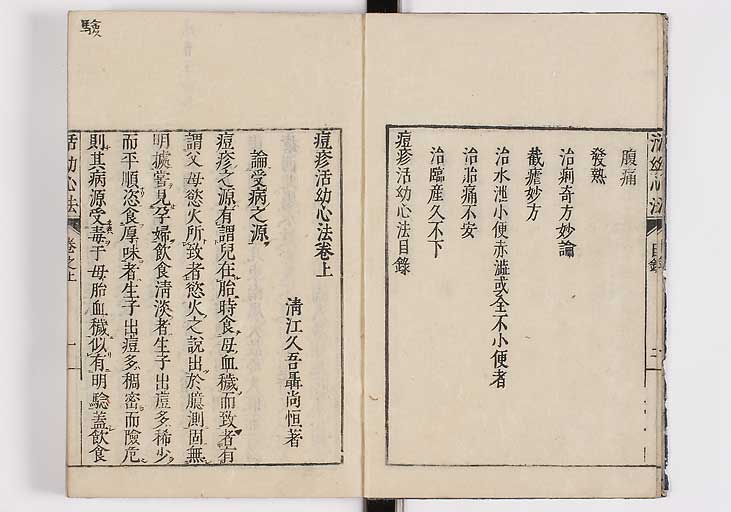 活幼心法
目錄
腹痛
發熱
治痢奇方妙論
截瘧妙方
治水泄小便赤澁或全不小便者
治胎痛不安
治臨産久不下
痘疹活幼心法目錄
驗
痘疹活幼心法卷上
淸江久吾聶尚恒著
論受病之源
痘疹之源有謂兒在胎時食母血穢而致者有
謂父母慾火所致者慾火之說出於臆測固無
明據嘗見孕婦飮食淸淡者生子出痘多稀少
而平順恣食厚味者生子出痘多稠密而險危
則其病源受毒于母胎血穢似有明驗蓋飮食
活幼心法
卷之上
一